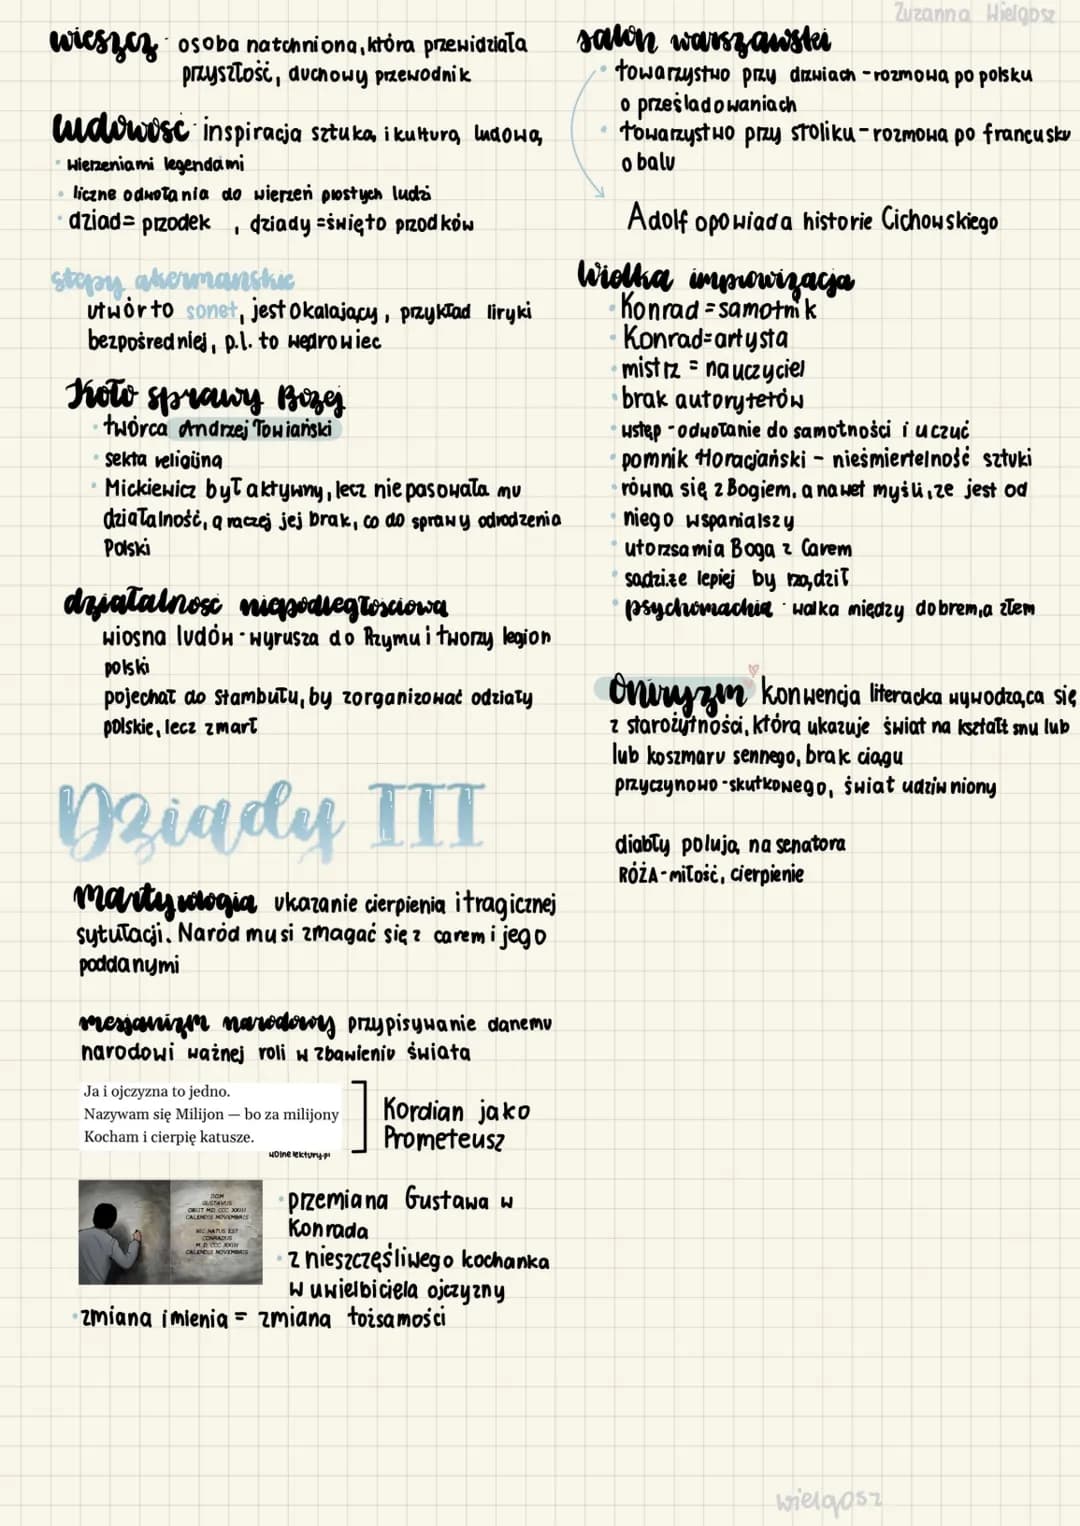 Zuzanna Wielgosz
wieszcz osoba natchniona, która przewidziała
przyszłość, duchowy przewodnik
ludowość inspiracja sztuką i kulturą ludową,
• wierzeniami legendami
• liczne odwołania do wierzeń prostych ludzi
• dziad = przodek , dziady = święto przodków
stepy akermańskie
utwór to sonet, jest okalający, przykład liryki
bezpośredniej, p.l. to wędrowiec
Koło sprawy Bożej
• twórca Andrzej Towiański
• sekta religijna
• Mickiewicz był aktywny, lecz nie pasowała mu
działalność, a raczej jej brak, co do sprawy odrodzenia
Polski
działalność niepodległościowa
wiosna ludów - wyrusza do Rzymu i tworzy legion
polski
pojechał do Stambułu, by zorganizować odziały
polskie, lecz zmarł
Dziady III
martyrologia ukazanie cierpienia i tragicznej
sytułacji. Naród musi zmagać się z carem i jego
poddanymi
mesjanizm narodowy przypisywanie danemu
narodowi ważnej roli w zbawieniu świata
Ja i ojczyzna to jedno.
Nazywam się Milijon — bo za milijony
Kocham i cierpię katusze.
wolnelektury.pl
Kordian jako
Prometeusz
DOM
GUSTAVUS
OBIIT M.D. CCC. XXIII
CALENDIS NOVEMBRIS
HIC NATUS EST
CONRADUS
M.D. CCC. XXIII
CALENDIS NOVEMBRIS
• przemiana Gustawa w
Konrada
• z nieszczęśliwego kochanka
w uwielbiciela ojczyzny
• zmiana imienia = zmiana tożsamości
salon warszawski
• towarzystwo przy drzwiach - rozmowa po polsku
o prześladowaniach
• towarzystwo przy stoliku - rozmowa po francusku
o balu
Adolf opowiada historie Cichowskiego
Wielka improwizacja
• Konrad = samotnik
• Konrad = artysta
• mistrz = nauczyciel
• brak autorytetów
• wstęp - odwołanie do samotności i uczuć
• pomnik Horacjański - nieśmiertelność sztuki
• równa się z Bogiem, a nawet myśli, że jest od
• niego wspanialszy
• utożsamia Boga z Carem
• sądzi, że lepiej by rządził
• psychomachia walka między dobrem, a złem
Oniryzm konwencja literacka wywodząca się
z starożytności, którą ukazuje świat na kształt snu lub
lub koszmaru sennego, brak ciągu
przyczynowo-skutkowego, świat udziwniony
diabły polują na senatora
RÓŻA - miłość, cierpienie
wielgosz